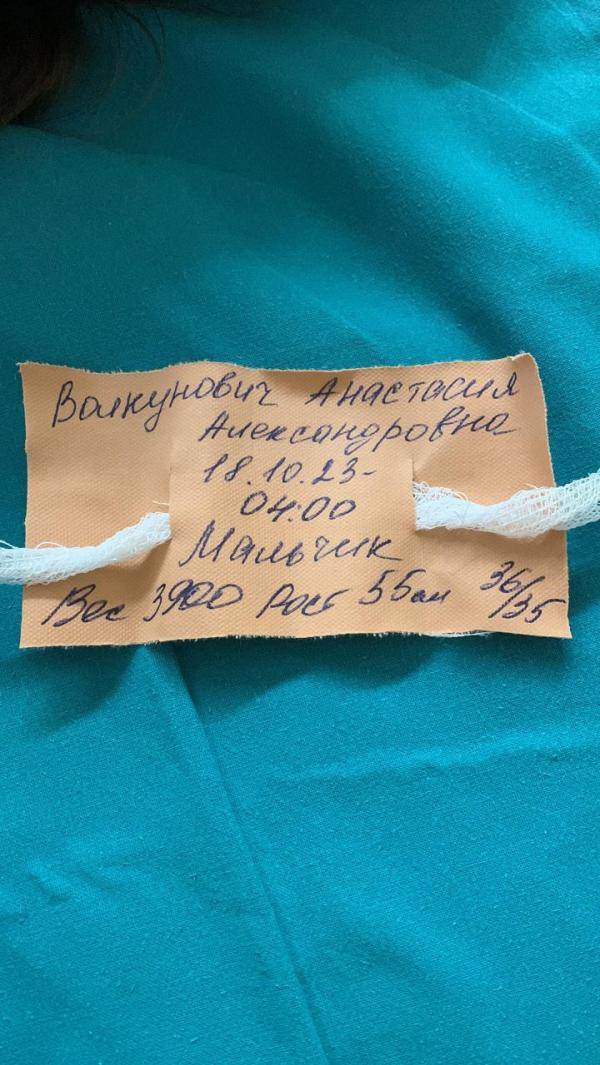 Волкунович Анастасия
Александровна
18.10.23-
04:00
Мальчик
Вес 3900 Рост 55см 36/35